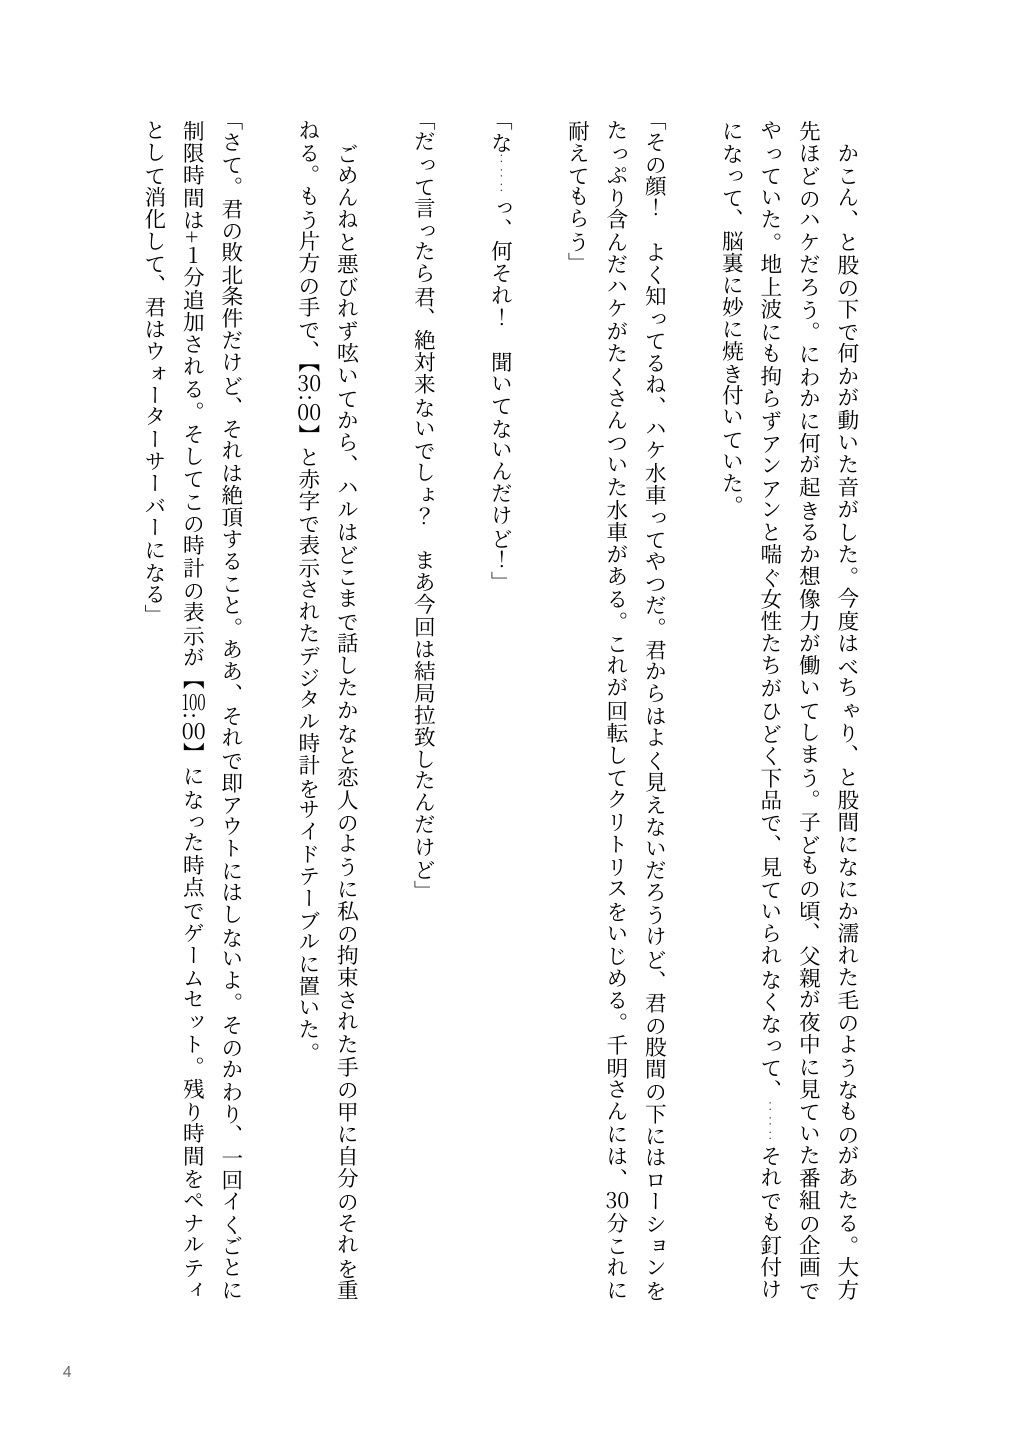 かこん、と股の下で何かが動いた音がした。今度はべちゃり、と股間になにか濡れた毛のようなものがあたる。大方
先ほどのハケだろう。にわかに何が起きるか想像力が働いてしまう。子どもの頃、父親が夜中に見ていた番組の企画で
やっていた。地上波にも拘らずアンアンと喘ぐ女性たちがひどく下品で、見ていられなくなって、……それでも釘付け
になって、脳裏に妙に焼き付いていた。
「その顔！　よく知ってるね、ハケ水車ってやつだ。君からはよく見えないだろうけど、君の股間の下にはローションを
たっぷり含んだハケがたくさんついた水車がある。これが回転してクリトリスをいじめる。千明さんには、30分これに
耐えてもらう」
「な……っ、何それ！　聞いてないんだけど！」
「だって言ったら君、絶対来ないでしょ？　まあ今回は結局拉致したんだけど」
ごめんねと悪びれず呟いてから、ハルはどこまで話したかなと恋人のように私の拘束された手の甲に自分のそれを重
ねる。もう片方の手で、【30:00】と赤字で表示されたデジタル時計をサイドテーブルに置いた。
「さて。君の敗北条件だけど、それは絶頂すること。ああ、それで即アウトにはしないよ。そのかわり、一回イくごとに
制限時間は+1分追加される。そしてこの時計の表示が【100:00】になった時点でゲームセット。残り時間をペナルティ
として消化して、君はウォーターサーバーになる」
4